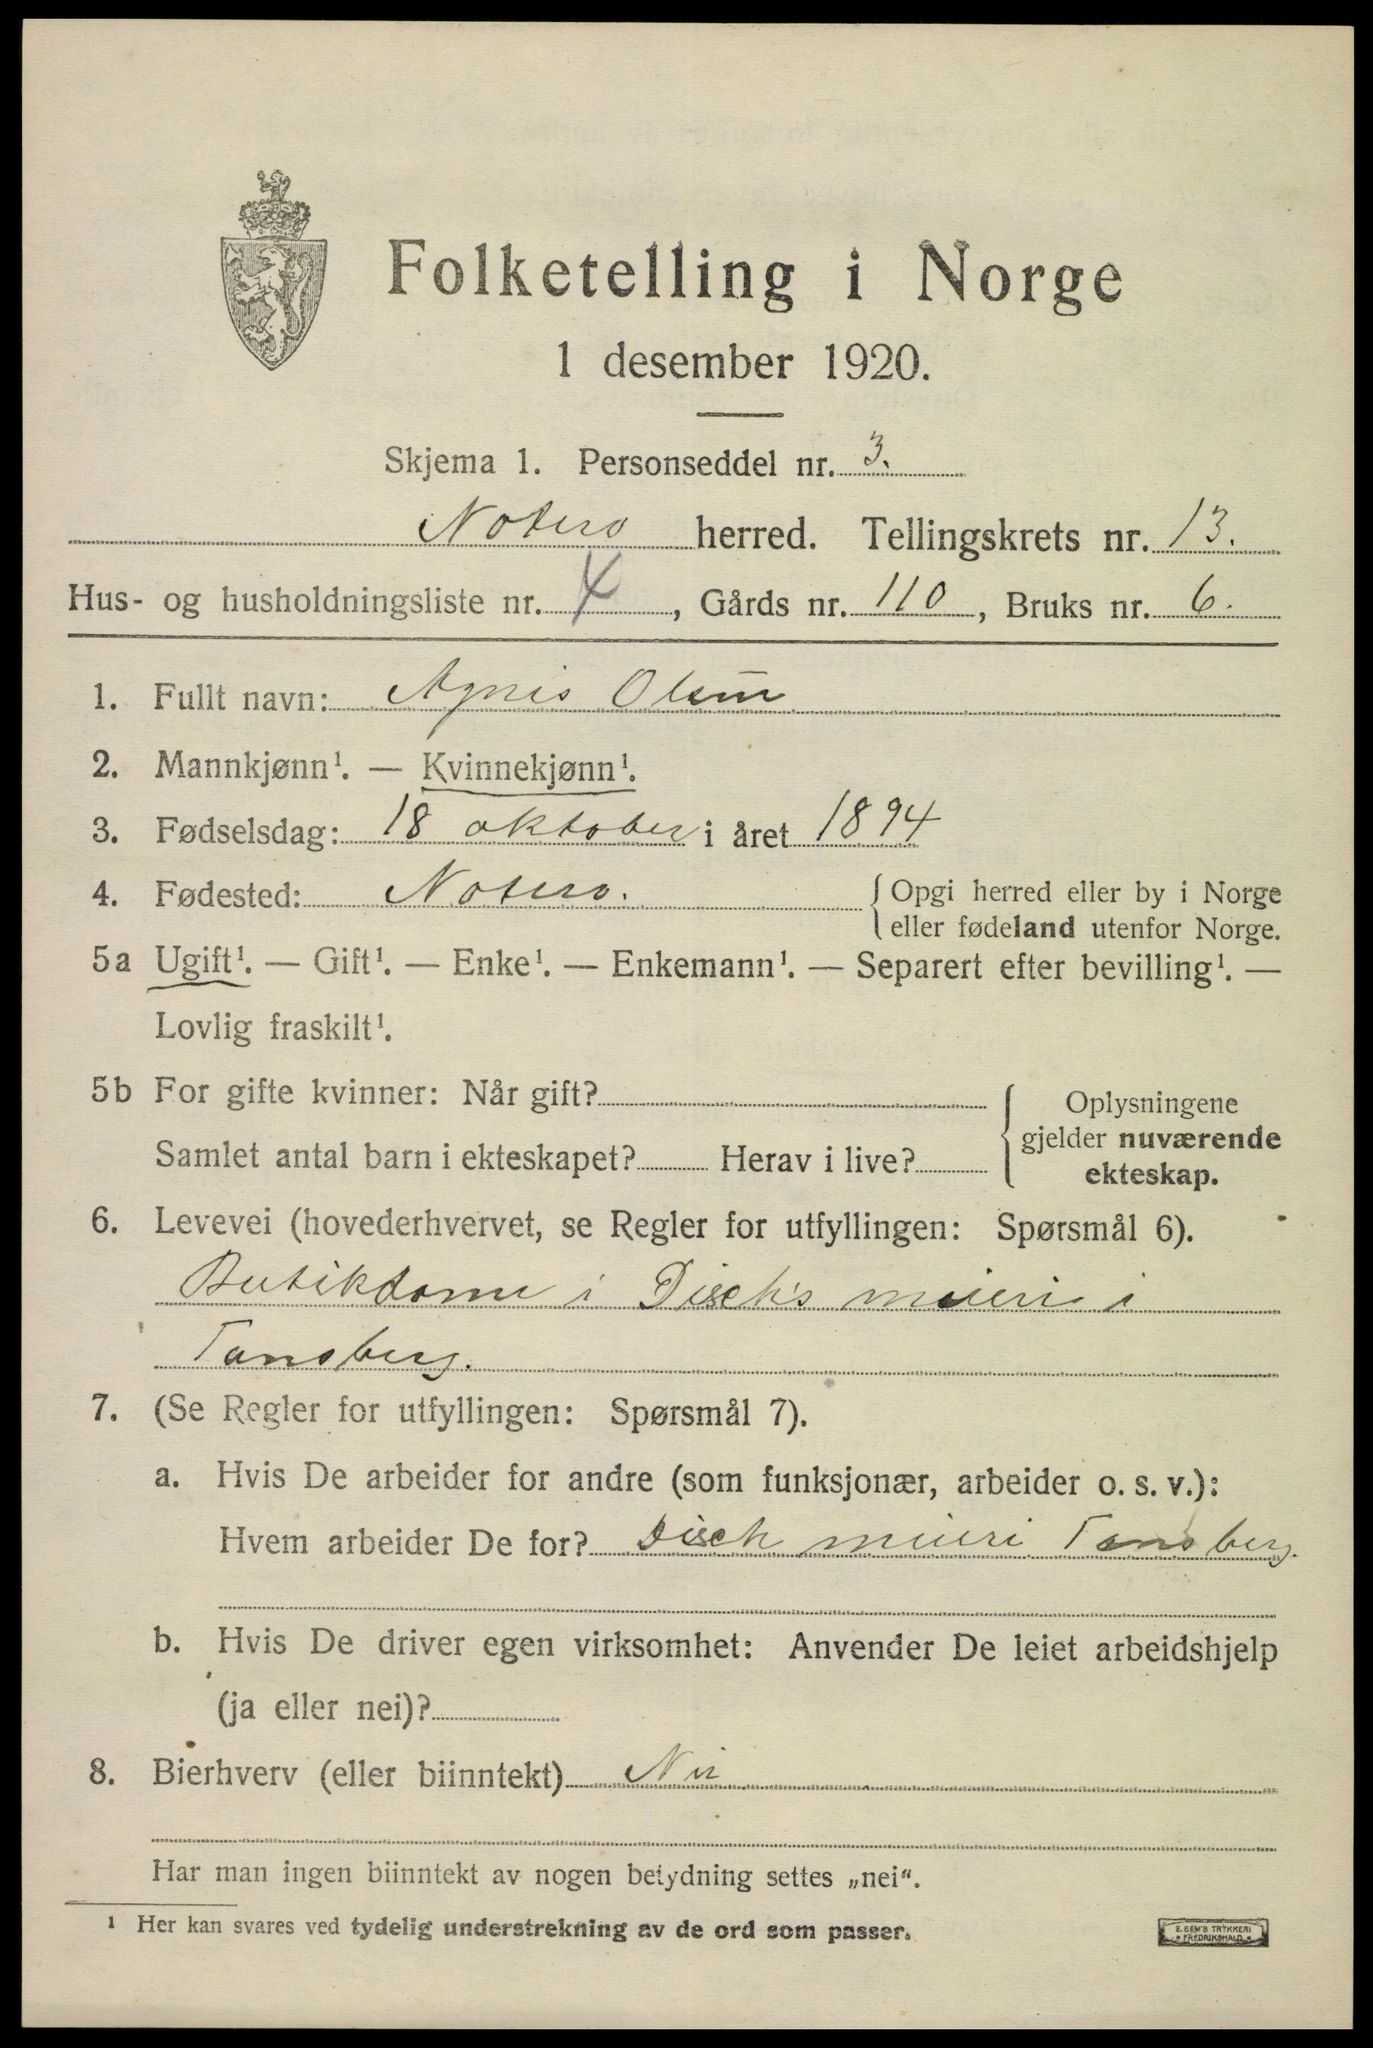 Folketelling i Norge
1 desember 1920.
Skjema 1. Personseddel nr. 3.
Notero herred. Tellingskrets nr. 13.
Hus- og husholdningsliste nr. 4, Gårds nr. 110, Bruks nr. 6.
1. Fullt navn: Agnes Olsen
2. Mannkjønn¹. — Kvinnekjønn¹.
3. Fødselsdag: 18 oktober i året 1894
4. Fødested: Notero. { Opgi herred eller by i Norge
eller fødeland utenfor Norge.
5a Ugift¹. — Gift¹. — Enke¹. — Enkemann¹. — Separert efter bevilling¹. —
Lovlig fraskilt¹.
5b For gifte kvinner: Når gift? { Oplysningene
gjelder nuværende
Samlet antal barn i ekteskapet? Herav i live? ekteskap.
6. Levevei (hovederhvervet, se Regler for utfyllingen: Spørsmål 6).
Butikdame i Disch's mieri i
Tønsberg.
7. (Se Regler for utfyllingen: Spørsmål 7).
a. Hvis De arbeider for andre (som funksjonær, arbeider o. s. v.):
Hvem arbeider De for? Disch mieri Tønsberg.
b. Hvis De driver egen virksomhet: Anvender De leiet arbeidshjelp
(ja eller nei)?
8. Bierhverv (eller biinntekt) Nei
Har man ingen biinntekt av nogen betydning settes „nei“.
¹ Her kan svares ved tydelig understrekning av de ord som passer.
E. SEM'S TRYKKERI
FREDRIKSHALD